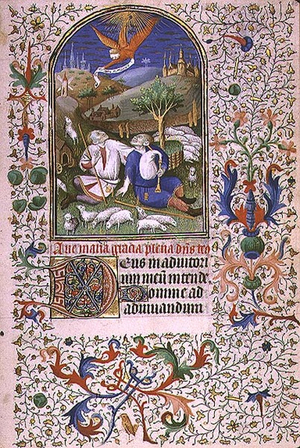 Aue maria gracia plena dn̄s tec
Deus in adiutori
um meū intende
Domine ad
adiuuandum